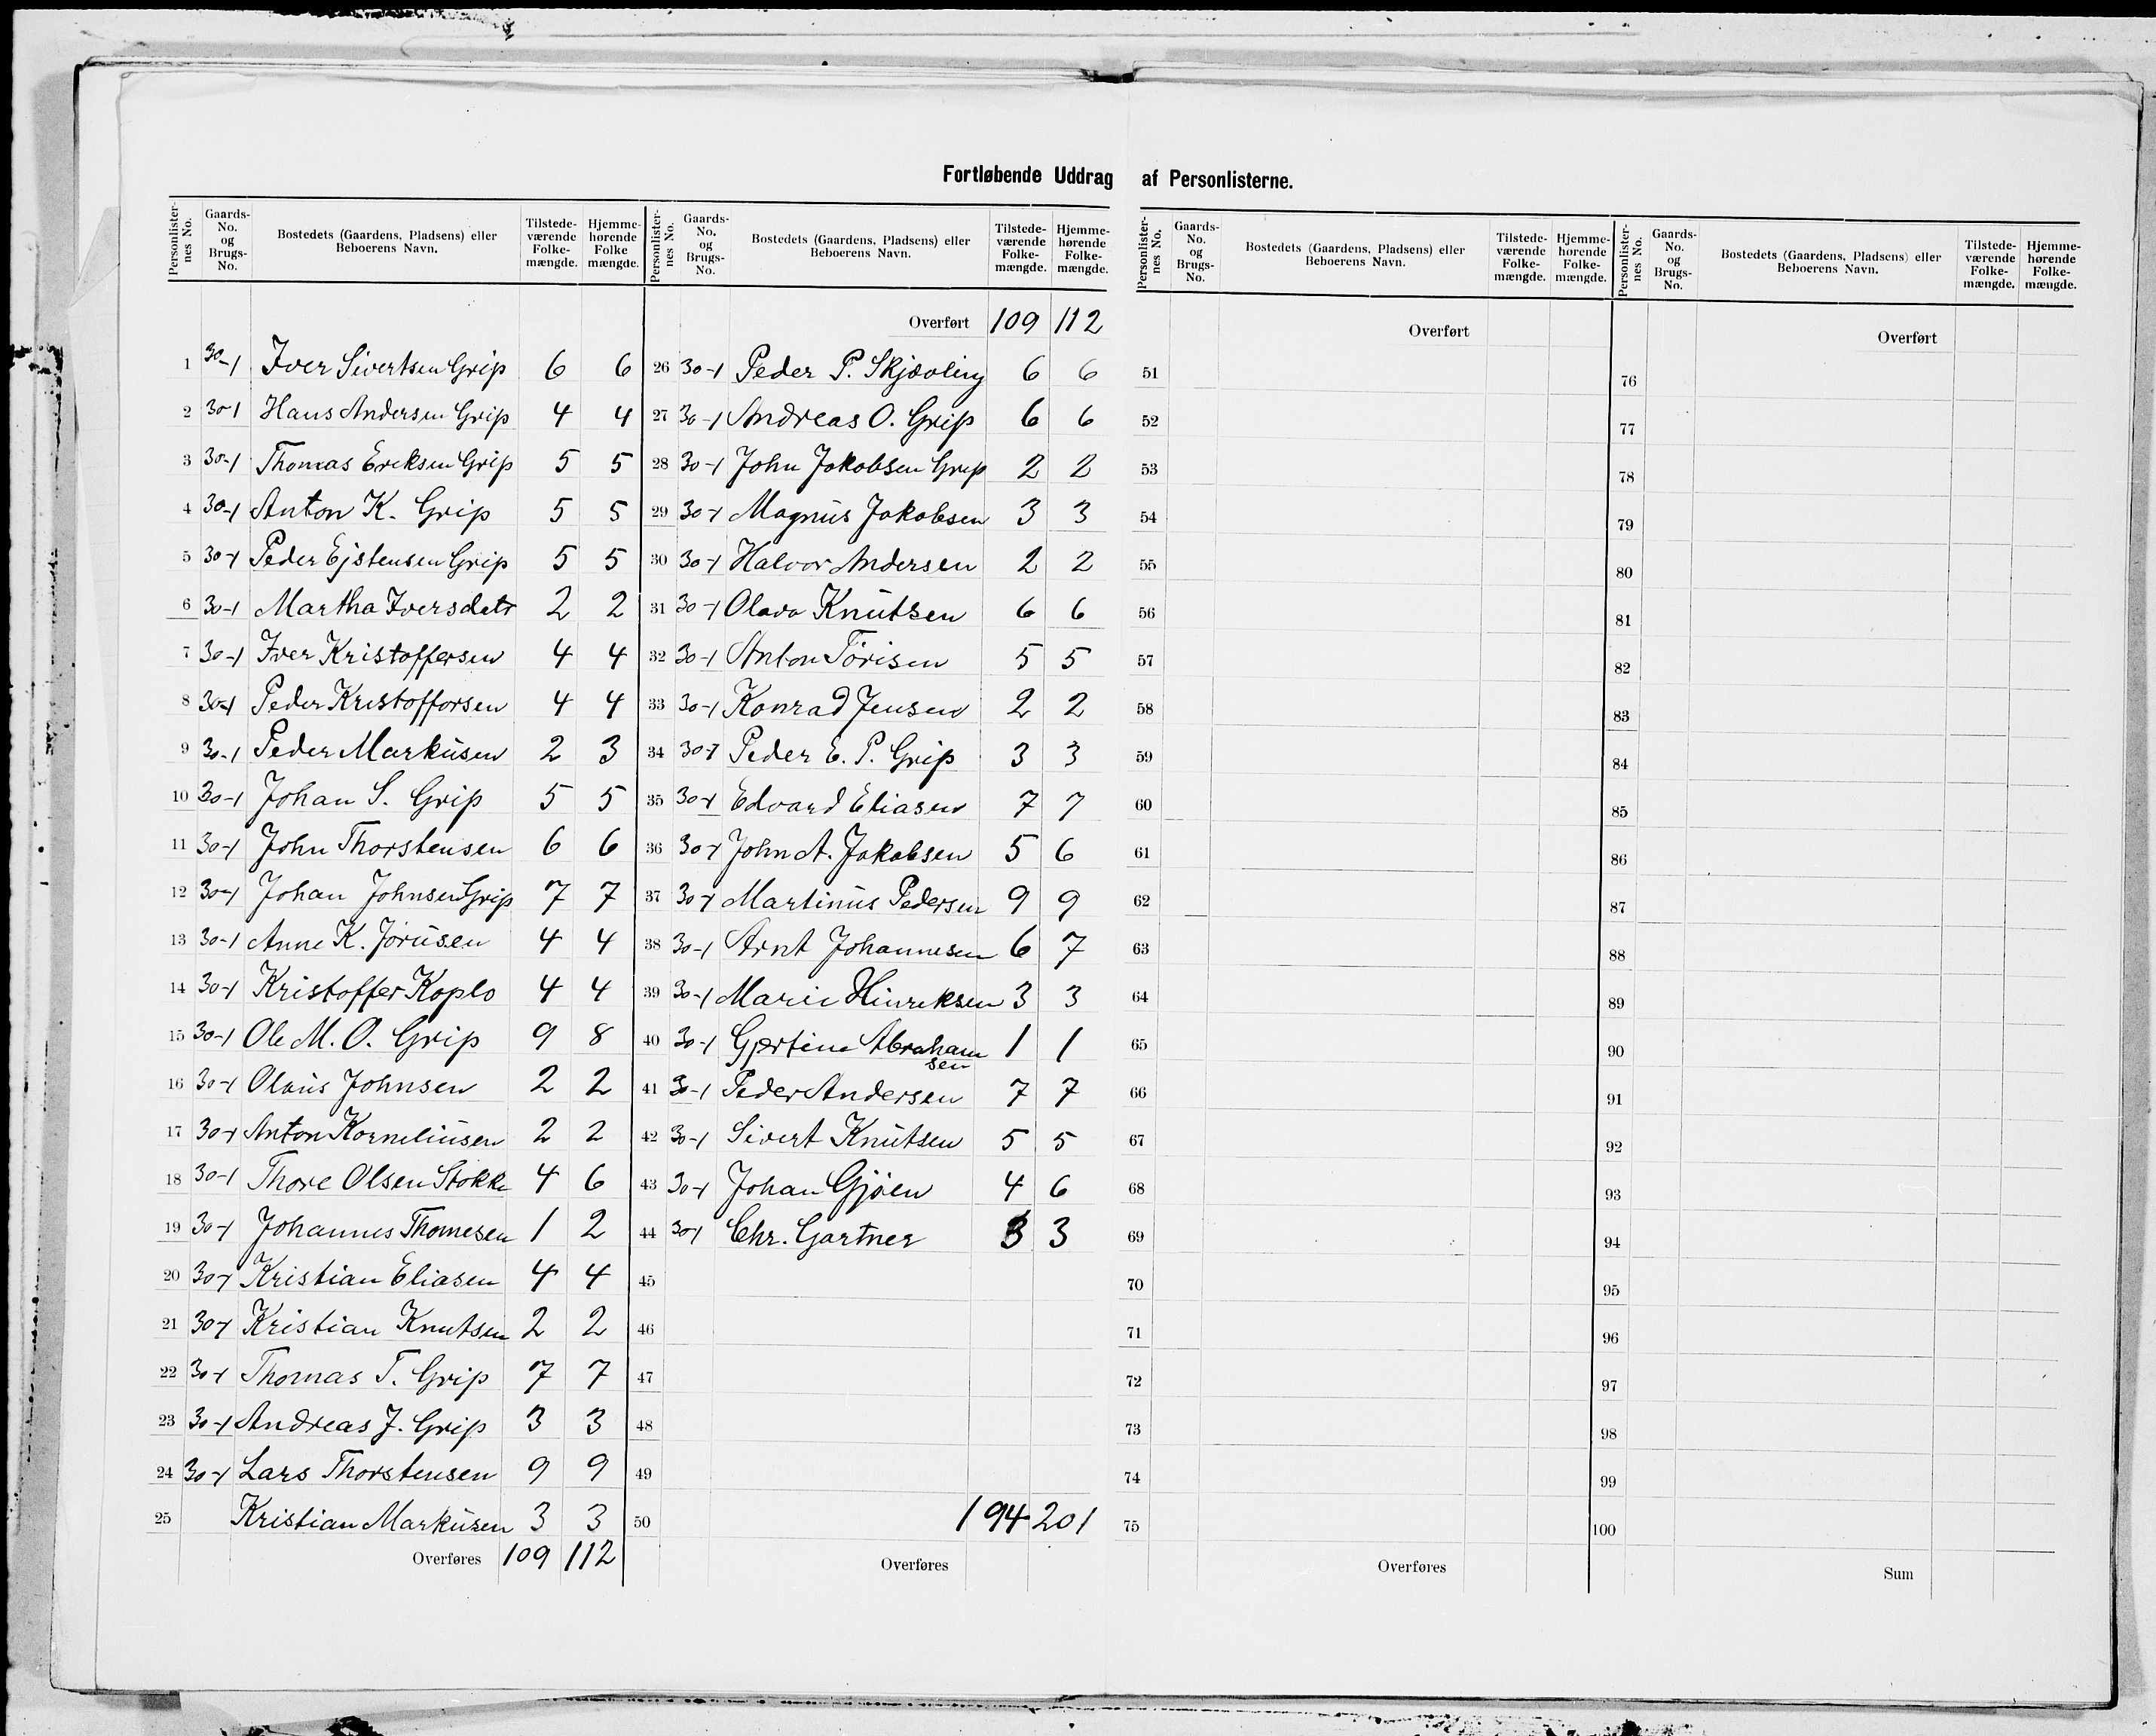 Fortløbende Uddrag af Personlisterne.
Personlister-nes No. Gaards-No. og Brugs-No. Bostedets (Gaardens, Pladsens) eller Beboerens Navn. Tilstede-værende Folke-mængde. Hjemme-hørende Folke mængde.
1 30-1 Iver Sivertsen Grip 6 6
2 30-1 Hans Andersen Grip 4 4
3 30-1 Thomas Ereksen Grip 5 5
4 30-1 Anton K. Grip 5 5
5 30-1 Peder Ejstensen Grip 5 5
6 30-1 Martha Iversdatr 2 2
7 30-1 Iver Kristoffersen 4 4
8 30-1 Peder Kristoffersen 4 4
9 30-1 Peder Markusen 2 3
10 30-1 Johan S. Grip 5 5
11 30-1 John Thorstensen 6 6
12 30-1 Johan Johnsen Grip 7 7
13 30-1 Anne K. Jörusen 4 4
14 30-1 Kristoffer Koplo 4 4
15 30-1 Ole M. O. Grip 9 8
16 30-1 Olaus Johnsen 2 2
17 30-1 Anton Korneliusen 2 2
18 30-1 Thore Olsen Stokke 4 6
19 30-1 Johannes Thomesen 1 2
20 30-1 Kristian Eliasen 4 4
21 30-1 Kristian Knutsen 2 2
22 30-1 Thomas T. Grip 7 7
23 30-1 Andreas J. Grip 3 3
24 30-1 Lars Thorstensen 9 9
25 Kristian Markusen 3 3
Overføres 109 112
Personlister-nes No. Gaards-No. og Brugs-No. Bostedets (Gaardens, Pladsens) eller Beboerens Navn. Tilstede-værende Folke-mængde. Hjemme-hørende Folke-mængde.
Overført 109 112
26 30-1 Peder P. Skjævling 6 6
27 30-1 Andreas O. Grip 6 6
28 30-1 John Jakobsen Grip 2 2
29 30-1 Magnus Jakobsen 3 3
30 30-1 Halvor Andersen 2 2
31 30-1 Olava Knutsen 6 6
32 30-1 Anton Törisen 5 5
33 30-1 Konrad Jensen 2 2
34 30-1 Peder E. P. Grip 3 3
35 30-1 Edvard Eliasen 7 7
36 30-1 John A. Jakobsen 5 6
37 30-1 Martinus Pedersen 9 9
38 30-1 Arnt Johannesen 6 7
39 30-1 Marie Hinreksen 3 3
40 30-1 Gjertine Abraham 1 1
sen
41 30-1 Peder Andersen 7 7
42 30-1 Sivert Knutsen 5 5
43 30-1 Johan Gjöen 4 6
44 30-1 Chr. Gartner 3 3
45
46
47
48
49
50 194 201
Overføres
Personlister-nes No. Gaards-No. og Brugs-No. Bostedets (Gaardens, Pladsens) eller Beboerens Navn. Tilstede-værende Folke-mængde. Hjemme-hørende Folke-mængde.
Overført
51
52
53
54
55
56
57
58
59
60
61
62
63
64
65
66
67
68
69
70
71
72
73
74
75
Overføres
Personlister-nes No. Gaards-No. og Brugs-No. Bostedets (Gaardens, Pladsens) eller Beboerens Navn. Tilstede-værende Folke-mængde. Hjemme-hørende Folke-mængde.
Overført
76
77
78
79
80
81
82
83
84
85
86
87
88
89
90
91
92
93
94
95
96
97
98
99
100
Sum